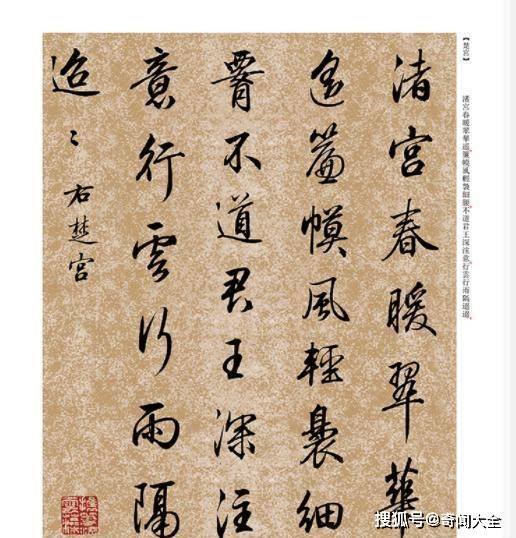 【楚宮】
渚宮春暖翠華遥簾幙風輕裊細腰不道君王深注意行雲行雨隔迢迢
渚宮春暖翠華
遥簾幙風輕裊細
腰不道君王深注
意行雲行雨隔
迢〻
右楚宮
搜狐号@奇闻大全